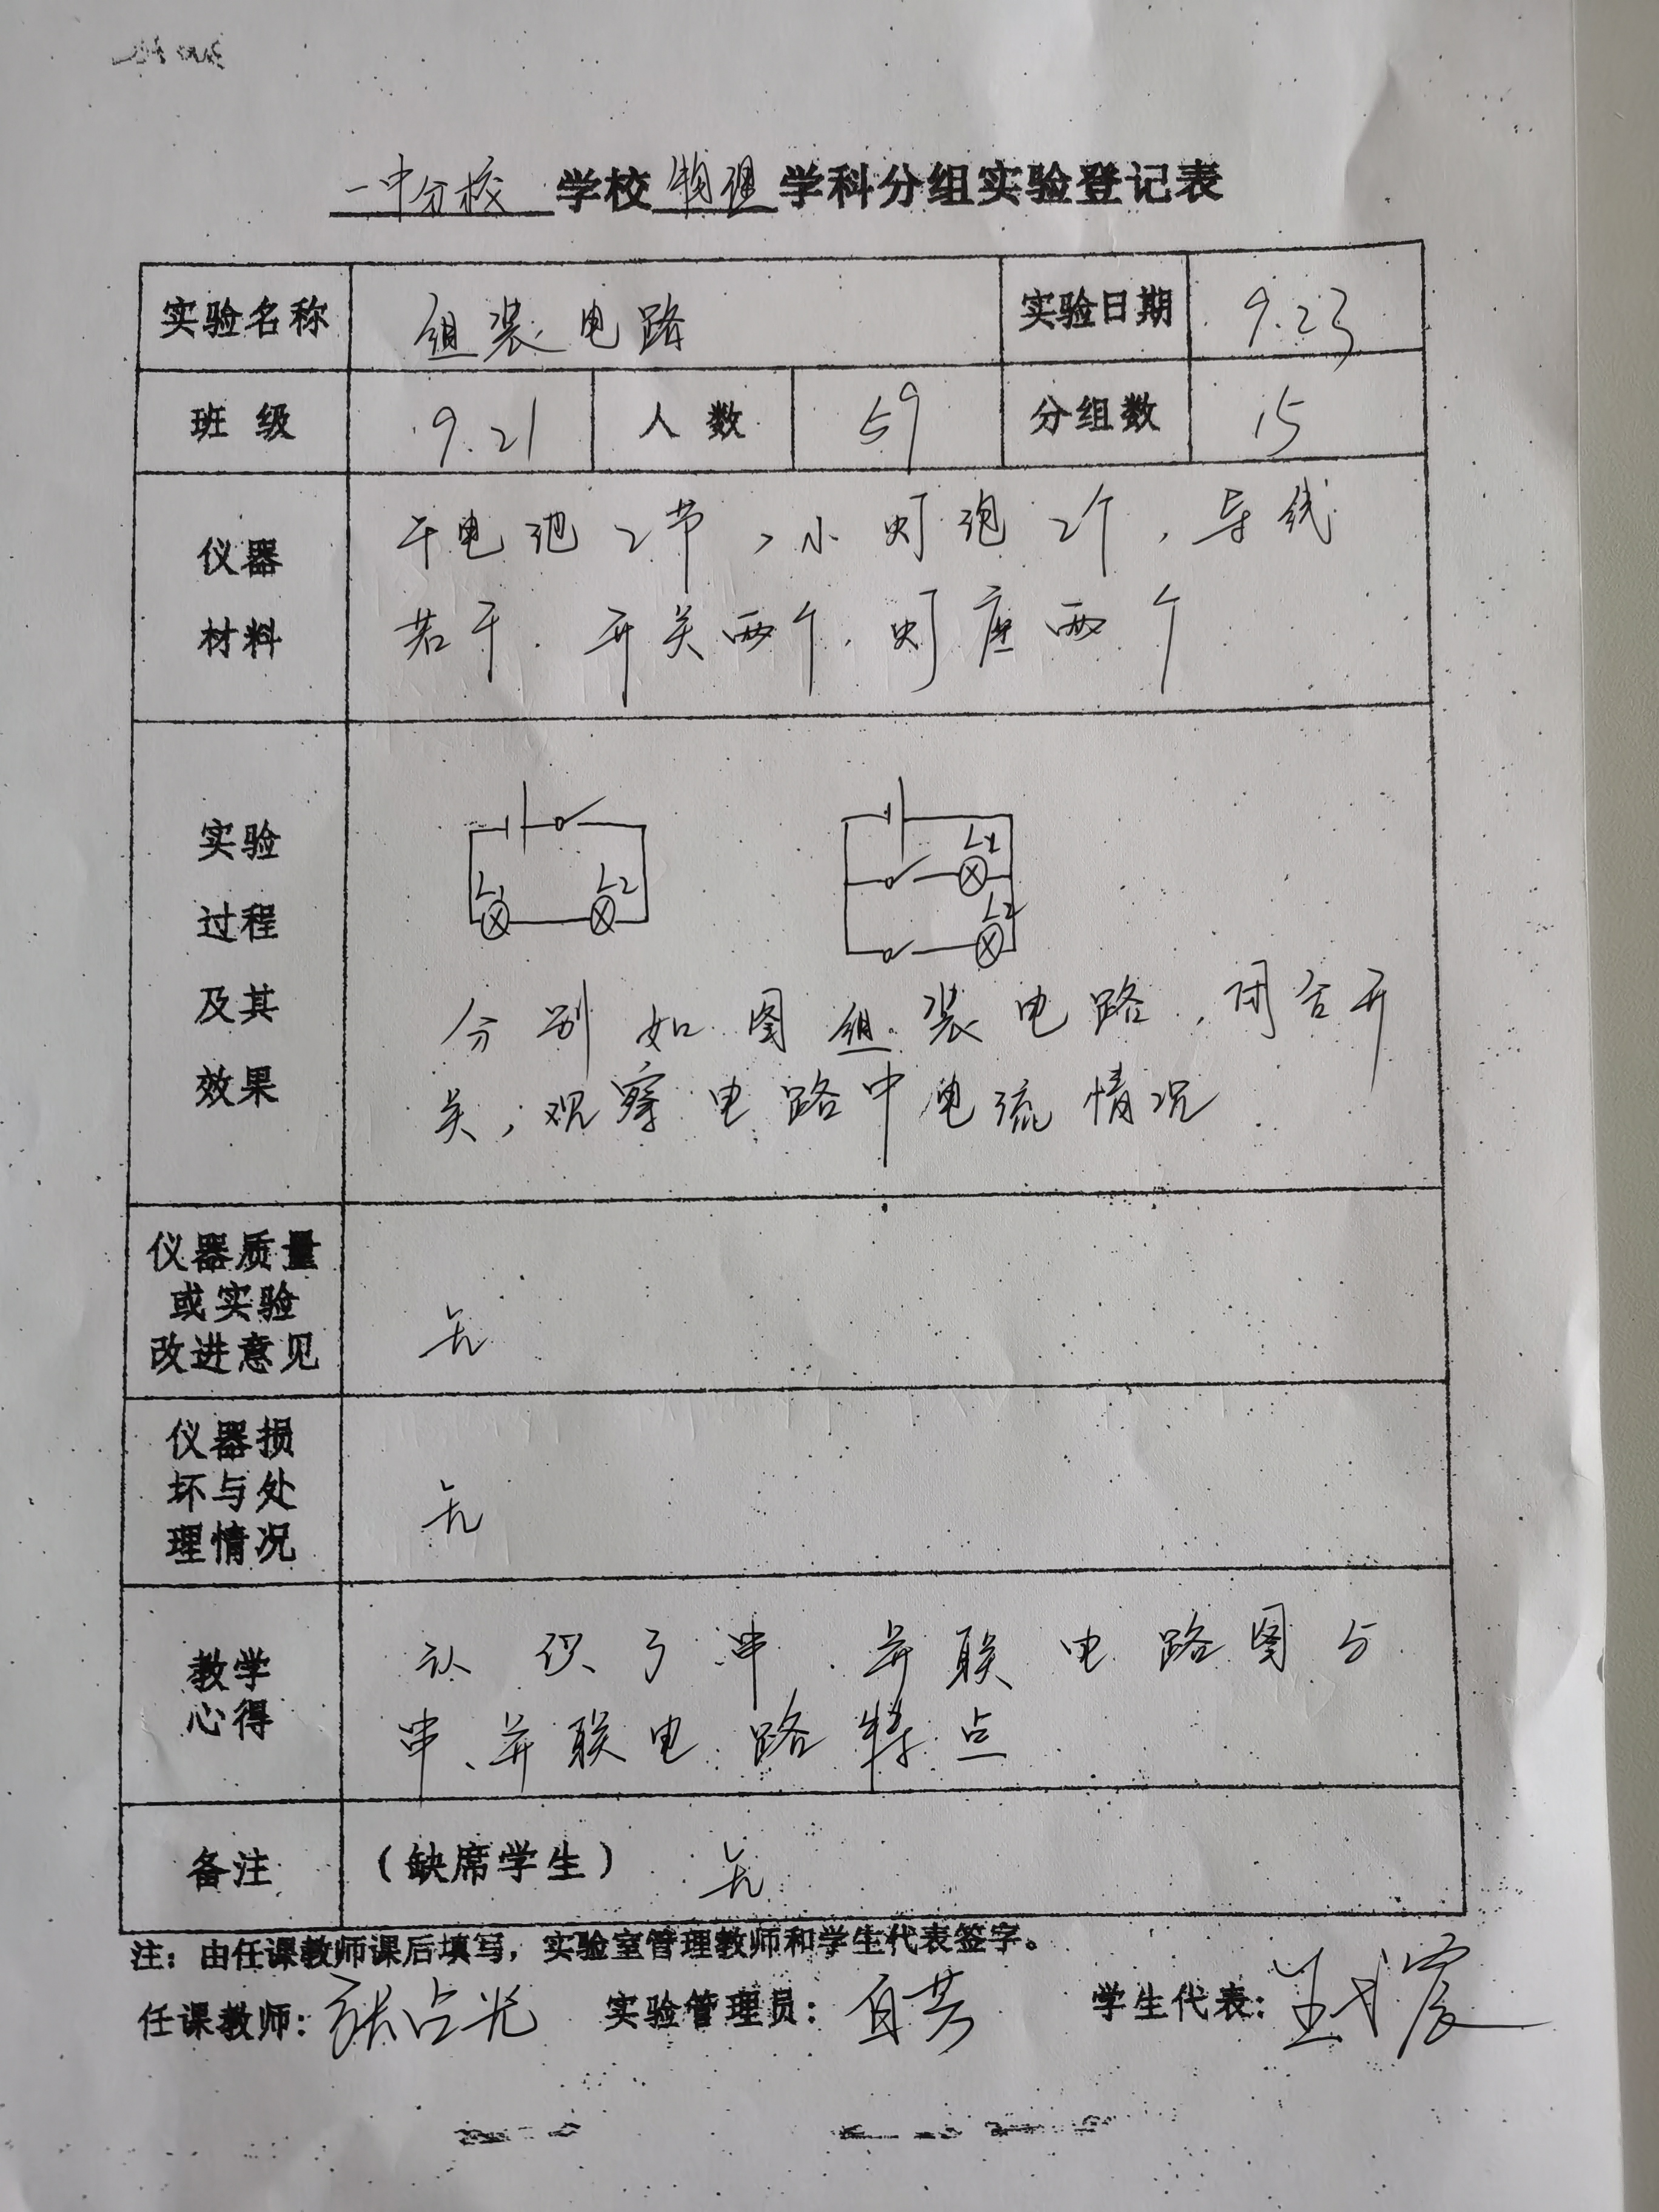 一中分校 学校 物理 学科分组实验登记表
实验名称 组装电路 实验日期 9.23
班级 9.21 人数 59 分组数 15
仪器
材料
干电池2节,小灯泡2个,导线
若干.开关两个.灯座两个
实验
过程
及其
效果
L1 L2
L1
L2
分别如图组装电路,闭合开
关,观察电路中电流情况
仪器质量
或实验
改进意见
无
仪器损
坏与处
理情况
无
教学
心得
认识了串.并联电路图与
串、并联电路特点
备注 (缺席学生) 无
注:由任课教师课后填写,实验室管理教师和学生代表签字。
任课教师:张占光 实验管理员: 学生代表: